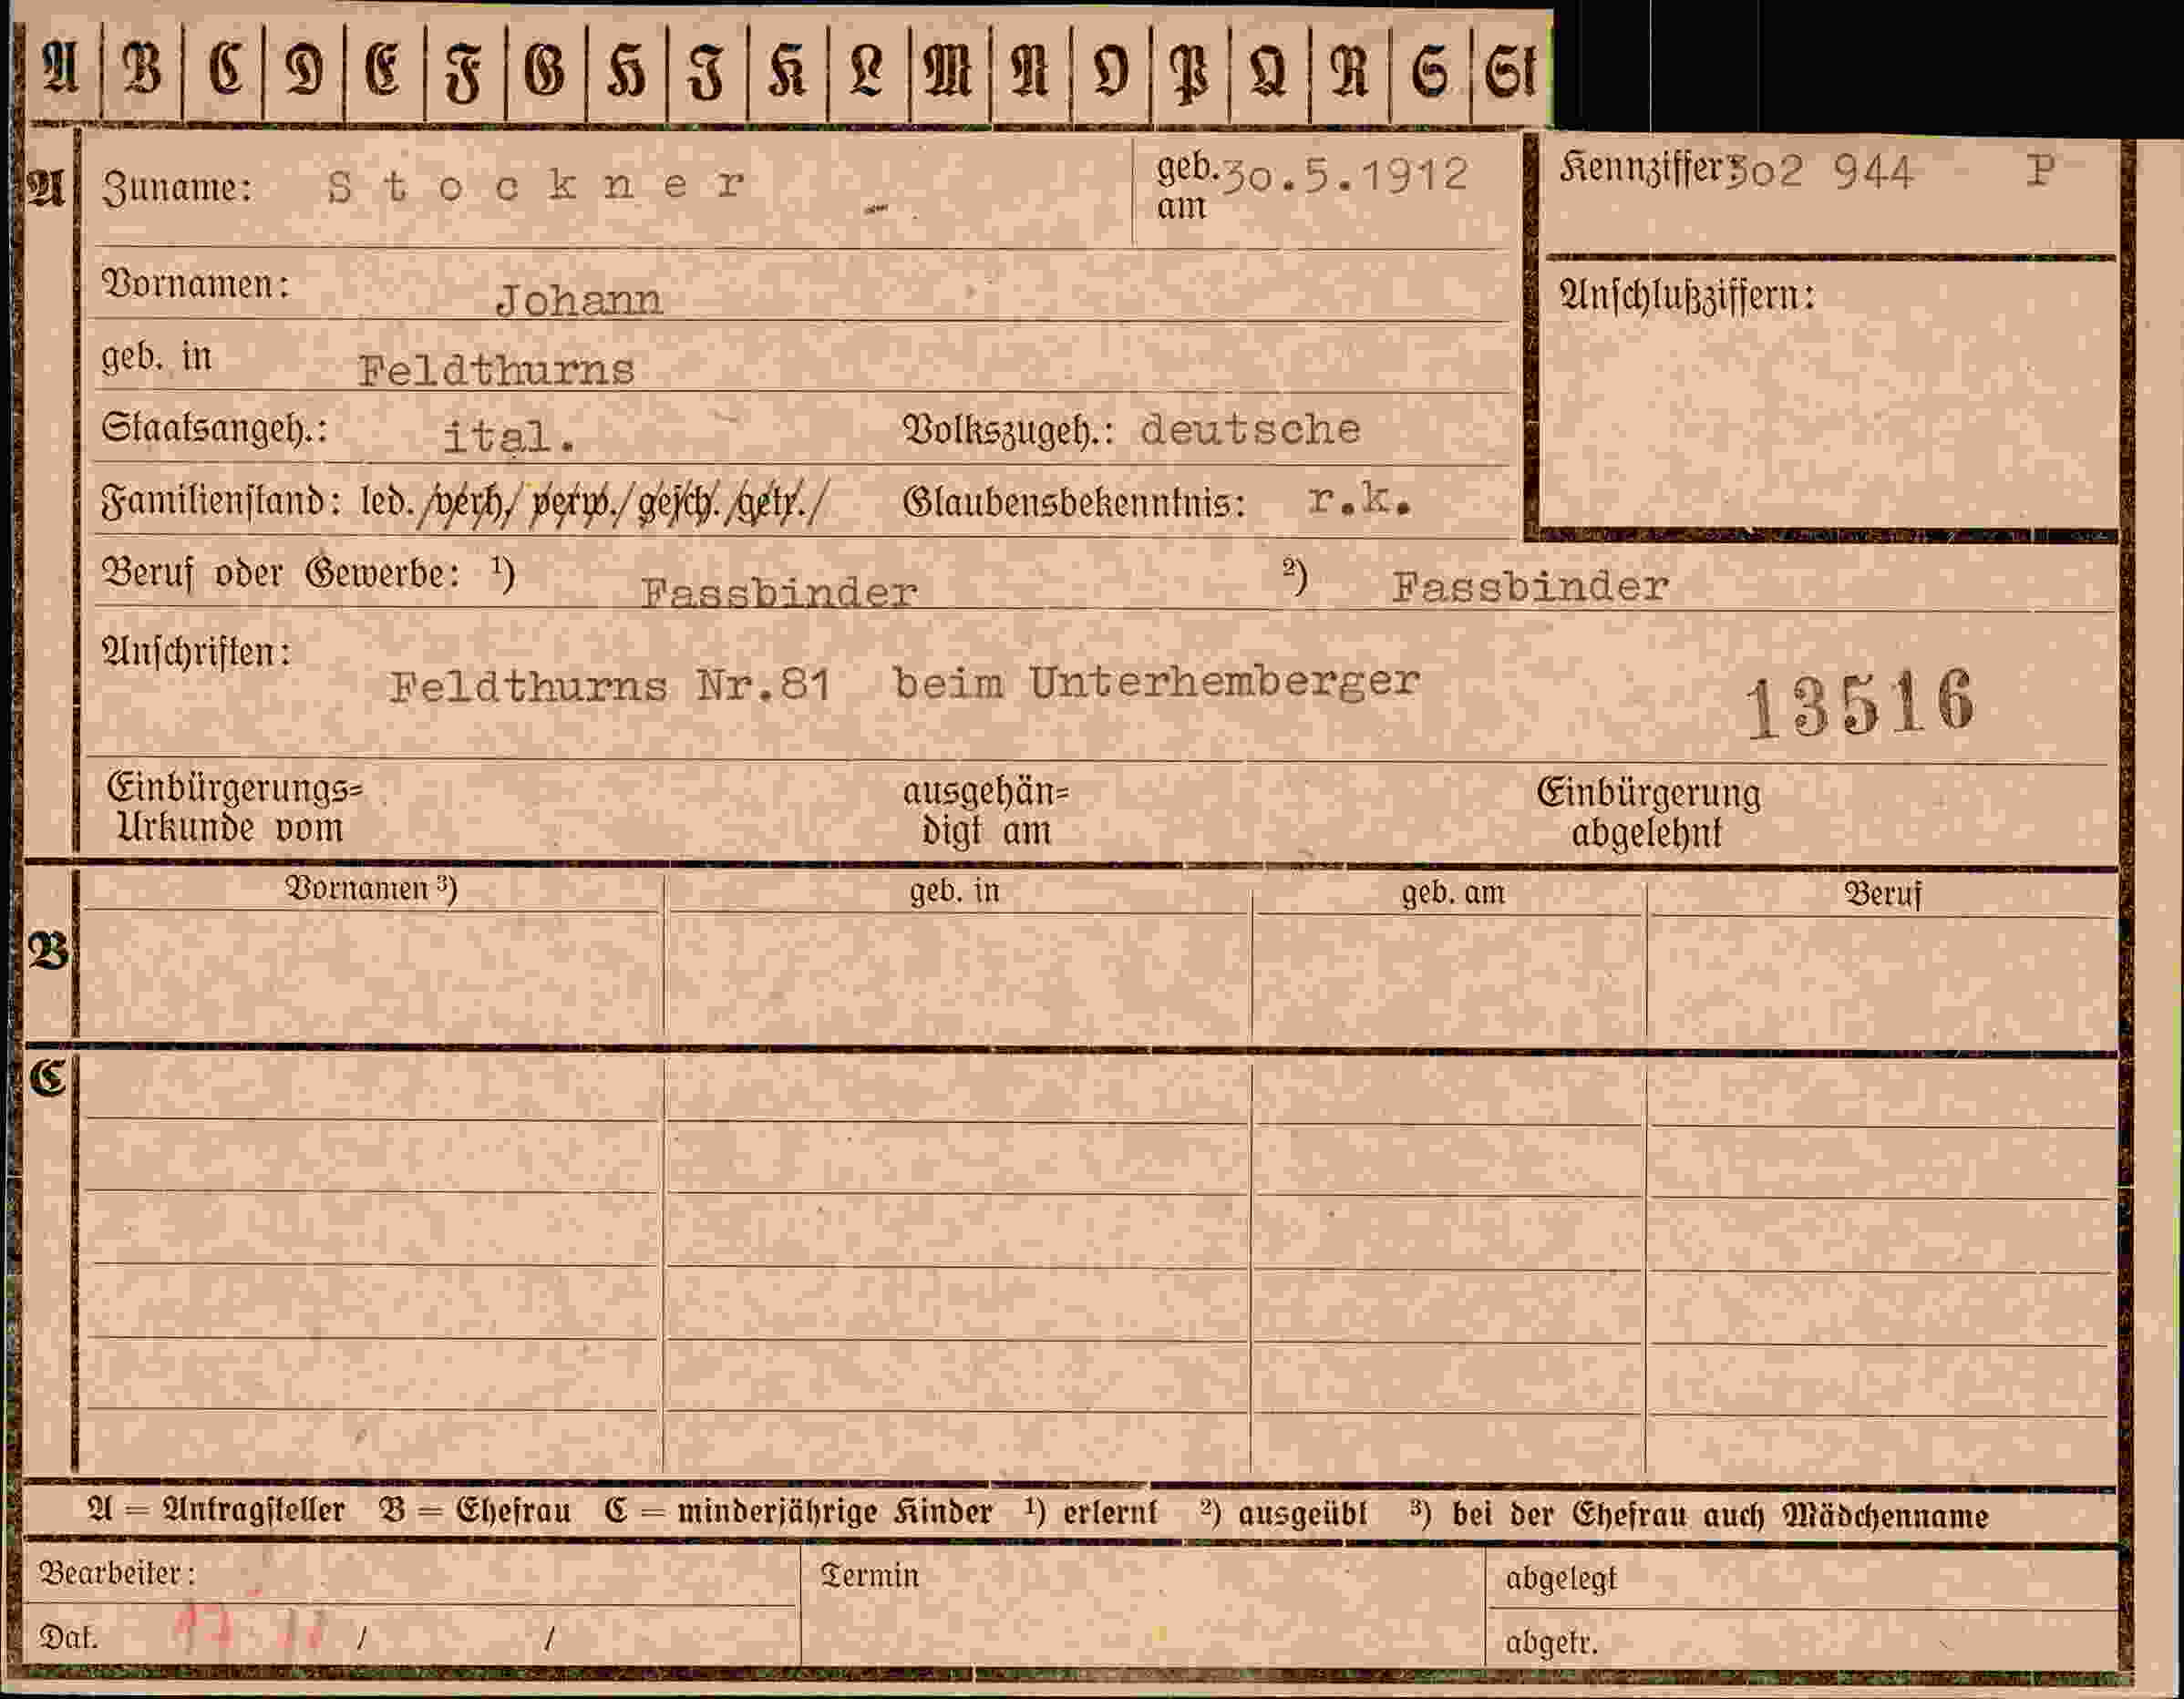 A B C D E F G H I K L M N O P Q R S St
A Zuname: Stockner geb. am 30.5.1912 Kennziffer 302 944 P
Vornamen: Johann Anschlußziffern:
geb. in Feldthurns
Staatsangeh.: ital. Volkszugeh.: deutsche
Familienstand: led./verh./verw./gesch./getr./ Glaubensbekenntnis: r.k.
Beruf oder Gewerbe: ¹) Fassbinder ²) Fassbinder
Anschriften: Feldthurns Nr.81 beim Unterhemberger 13516
Einbürgerungs= ausgehän= Einbürgerung
Urkunde vom digt am abgelehnt
B Vornamen ³) geb. in geb. am Beruf
C
A = Antragsteller B = Ehefrau C = minderjährige Kinder ¹) erlernt ²) ausgeübt ³) bei der Ehefrau auch Mädchenname
Bearbeiter: Termin abgelegt
Dat. / / abgetr.